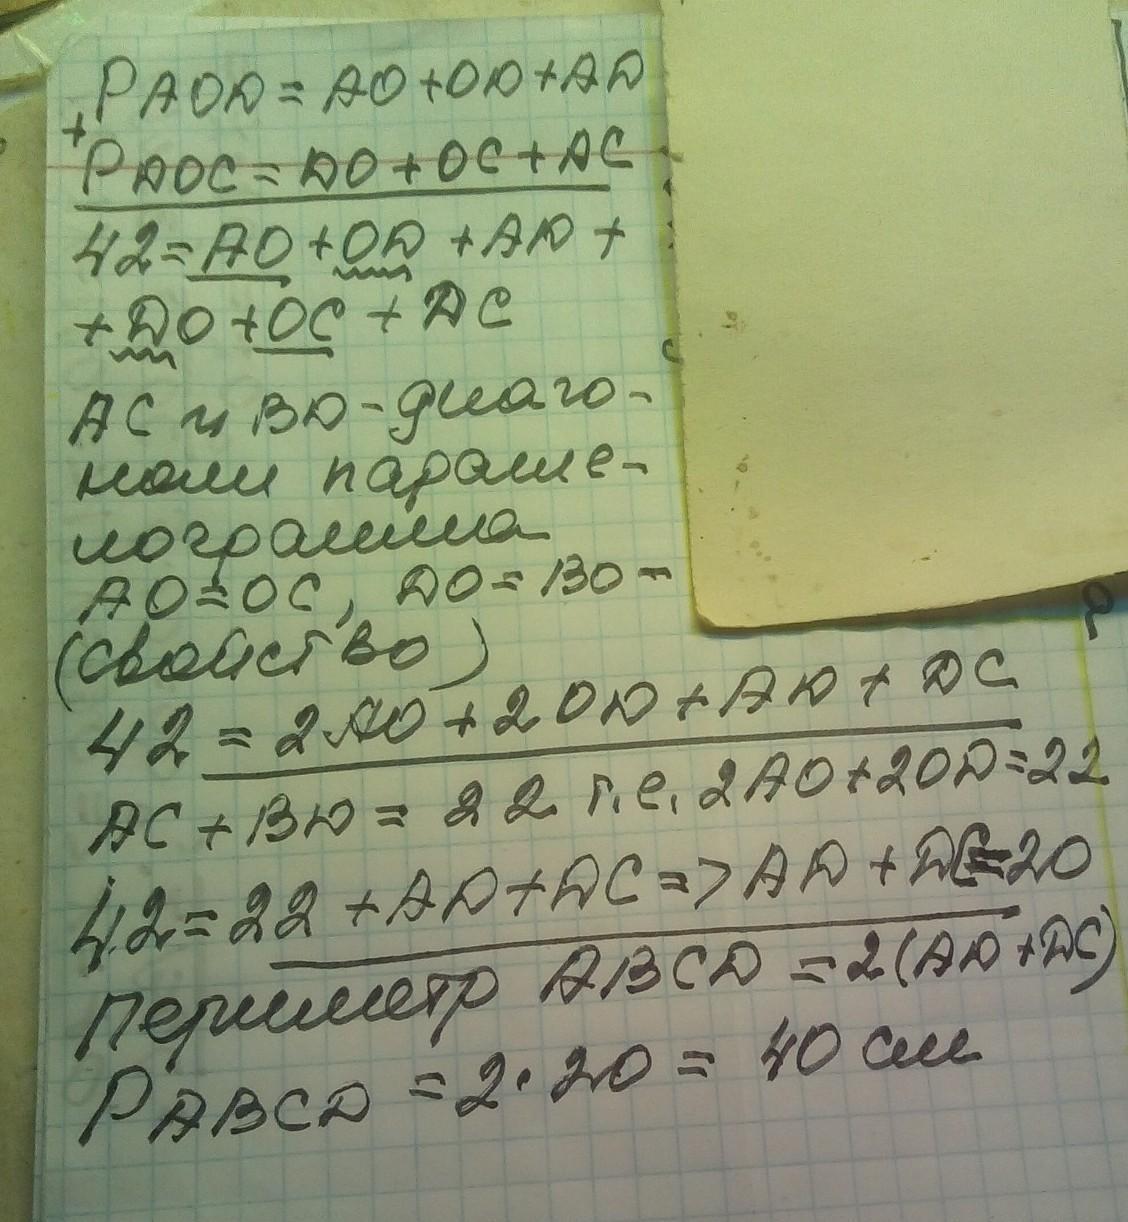 PAOD = AO+OD+AD
+
PDOC = DO+OC+DC
42=AO+OD+AD+
+DO+OC+DC
AC и BD-диаго-
нали паралле-
лограмма
AO=OC, DO=BO-
(свойство)
42=2AO+2OD+AD+DC
AC+BD=22 т.е. 2AO+2OD=22
42=22+AD+DC=>AD+DC=20
Периметр ABCD=2(AD+DC)
PABCD=2·20=40 см